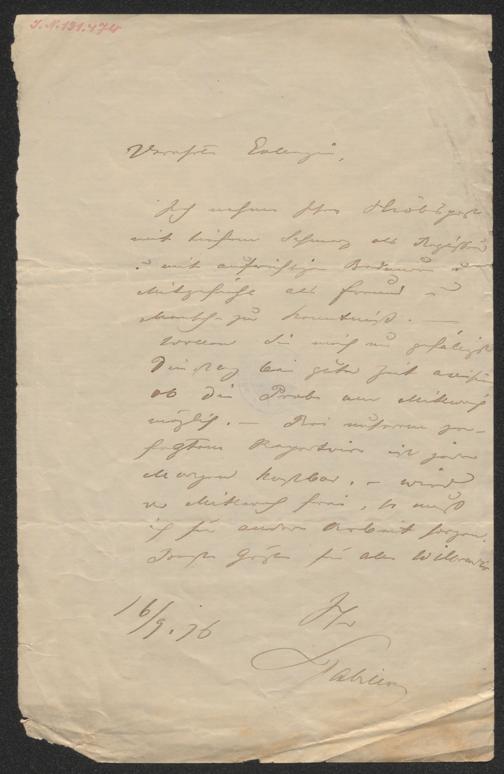 I.N. 131.474
Verehrte Collegin,
Ich nehme Ihre Hiobspost
mit tiefem Schmerz als Regisseur
u. mit aufrichtigem Bedauern u
Mitgefühl als Freund u
Mensch zur Kenntniß. —
wollen Sie mich nur gefälligst
Dienstag bei guter Zeit avisiren
ob die Probe am Mittwoch
möglich. — Bei unserem
Repertoire ist jeder
Morgen kostbar. — wird
der Mittwoch frei, so muß
ich für andere Arbeit sorgen.
Grüße für alle
16/9. 76
Ihr